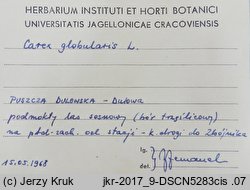 HERBARIUM INSTITUTI ET HORTI BOTANICI
UNIVERSITATIS JAGELLONICAE CRACOVIENSIS
Carex globularis L.
PUSZCZA DULOWSKA - Dulowa
podmokły las sosnowy (bór trzęślicowy)
na płd-zach. od stacji - k. drogi do Zbójnika
lg.
det.
15.05.1968
(c) Jerzy Kruk jkr-2017_9-DSCN5283cis .07